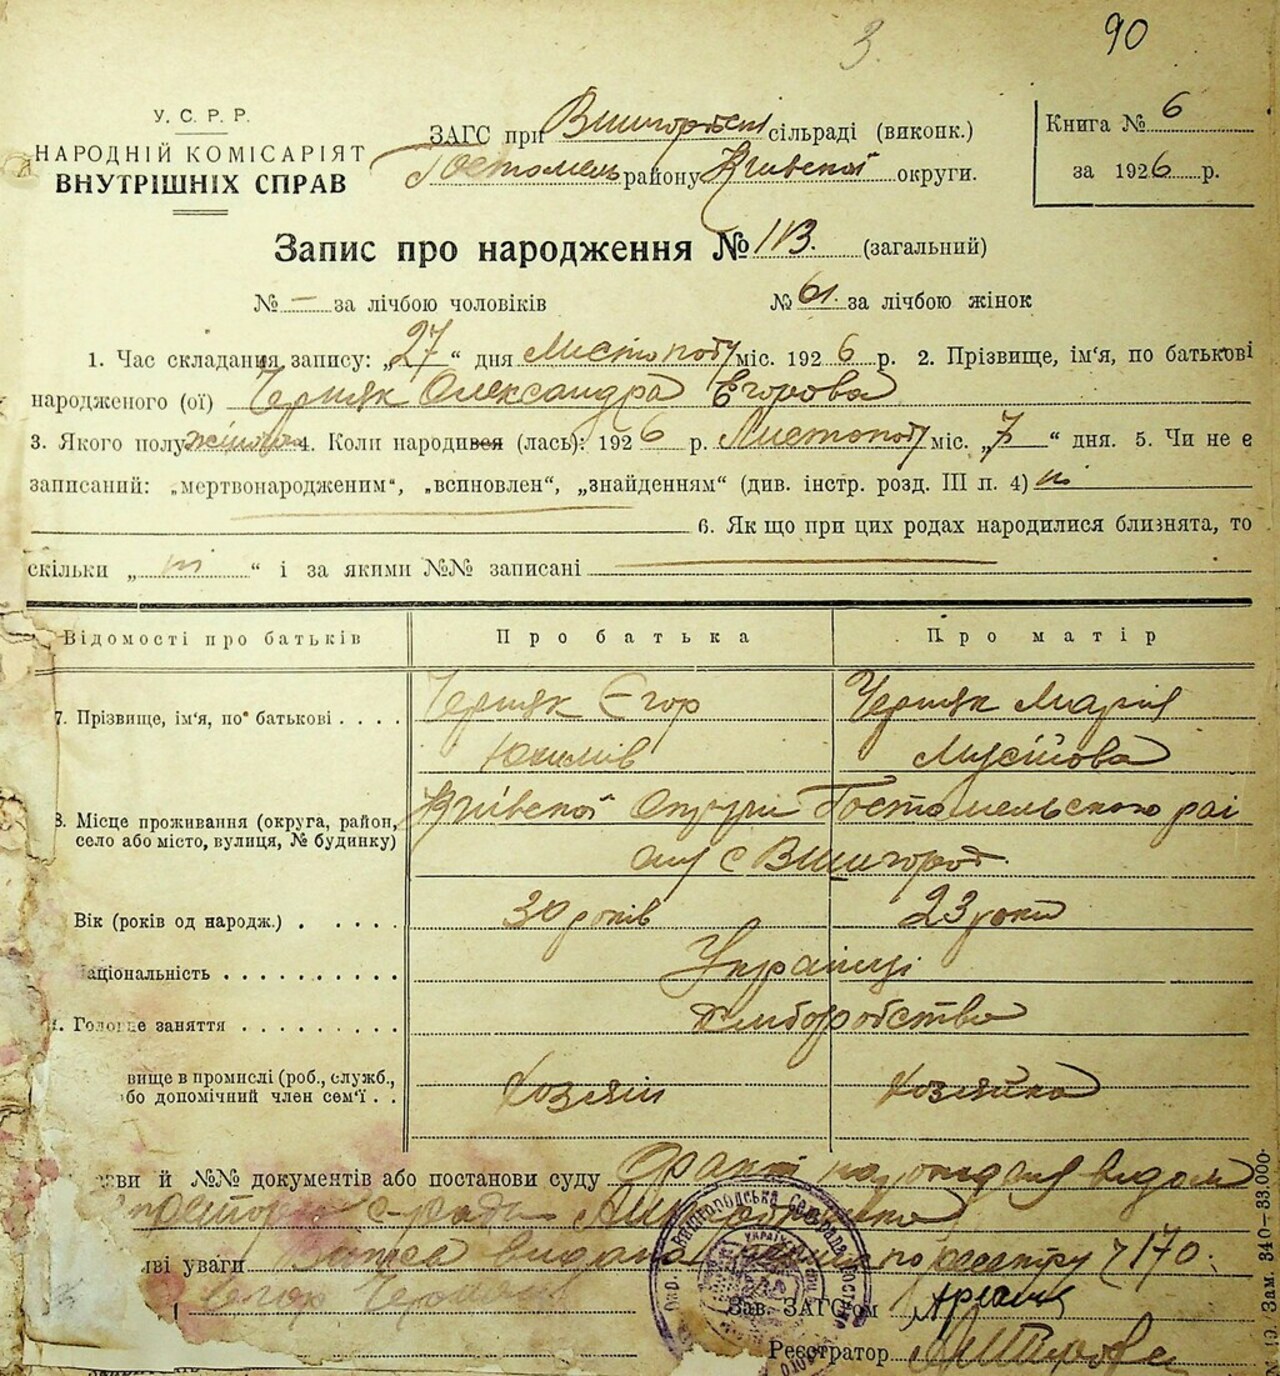 3.
90
У. С. Р. Р.
НАРОДНІЙ КОМІСАРІЯТ
ВНУТРІШНІХ СПРАВ
ЗАГС при сільраді (виконк.)
Гостомель району Київської округи.
Книга № 6
за 1926 р.
Запис про народження № 113. (загальний)
№ — за лічбою чоловіків
№ 61. за лічбою жінок
1. Час складання запису: „27“ дня Листопаду міс. 1926 р. 2. Прізвище, ім'я, по батькові
народженого (ої) Черняк Олександра Єгорова
3. Якого полу 4. Коли народився (лась): 1926 р. Листопаду міс. „7“ дня. 5. Чи не є
записаний: „мертвонародженим“, „всиновлен“, „знайденням“ (див. інстр. розд. III п. 4) ні
6. Як що при цих родах народилися близнята, то
скільки „ ні “ і за якими №№ записані
Відомості про батьків
Про батька
Про матір
7. Прізвище, ім'я, по батькові . . . .
Черняк Єгор
Черняк Мария
Юхимів
Мусійова
8. Місце проживання (округа, район,
село або місто, вулиця, № будинку)
Київської Округи Гостомельского рай
ону с Вишгород.
Вік (років од народж.) . . . . .
30 років
23 роки
аціональність . . . . . . . . . .
Українці
Головне заняття . . . . . . . . .
Хліборобство
вище в промислі (роб., служб.,
бо допомічний член сем'ї . .
Хозяін
Хозяйка
ви й №№ документів або постанови суду
видом
ві уваги видана по реестру 170.
Єгор Черняк
Зав. ЗАГС'ом
Реєстратор
Зам. 340—33.000